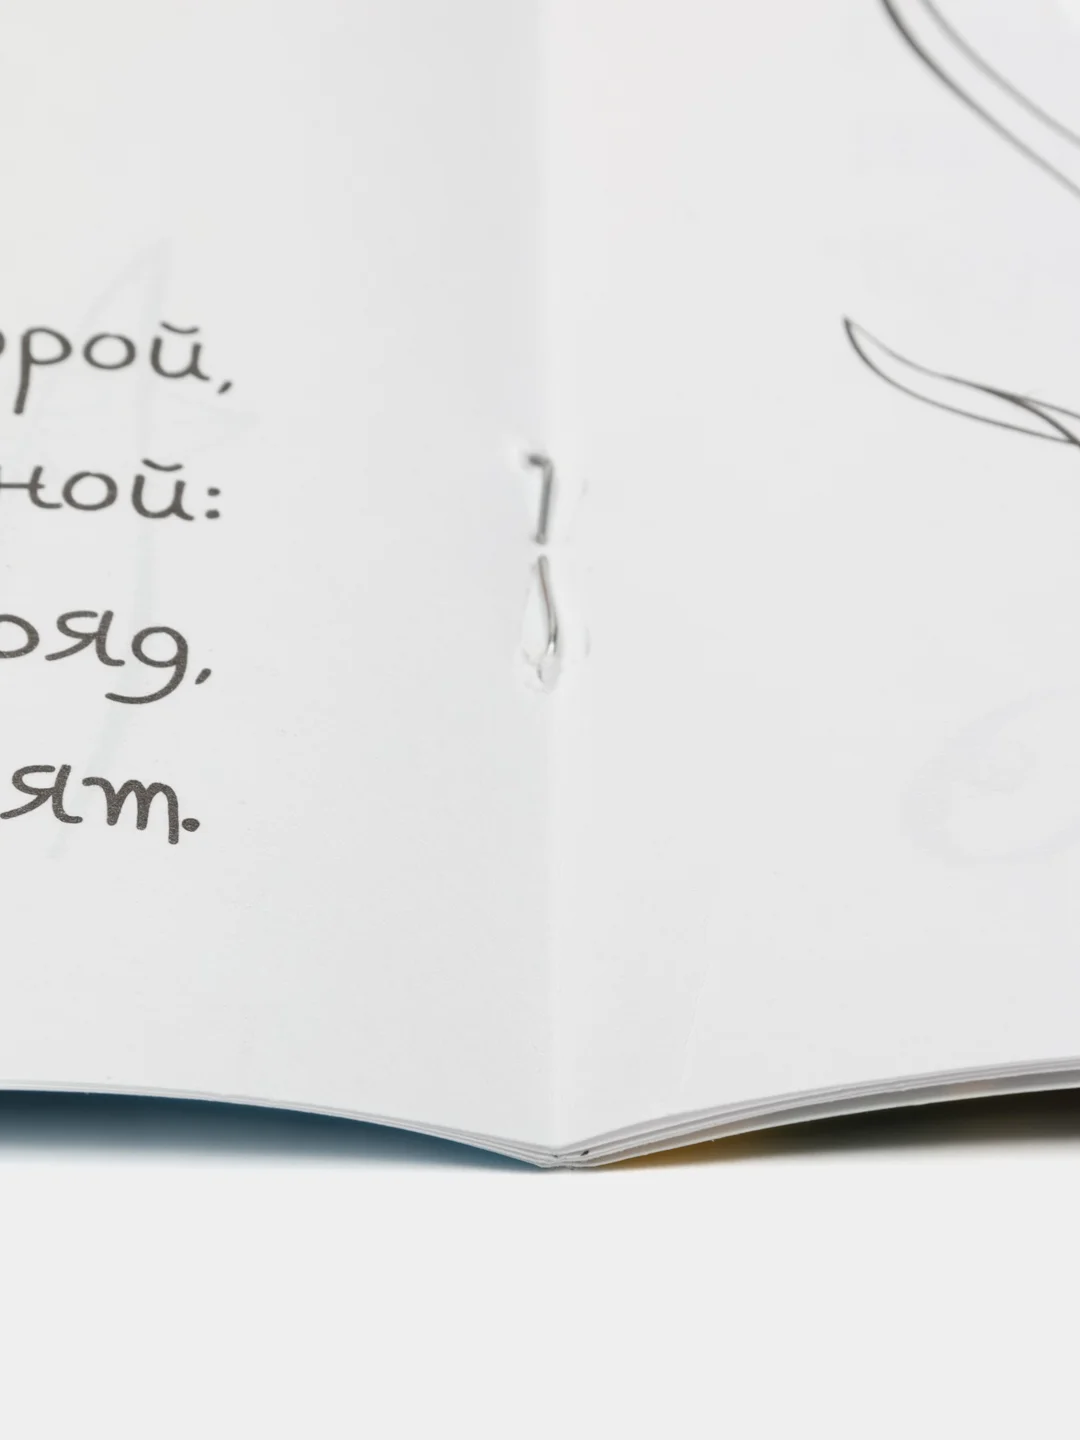 орой,
ной:
ояд,
ят.